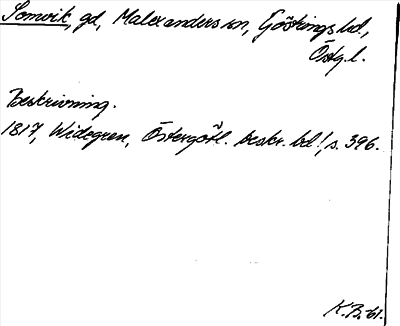 Somvik, gd, Malexanders sn, Göstrings hd.,
Östg.l.
Beskrivning.
1817, Widegren, Östergötl. beskr. bd!, s. 396.
K.B.-61.